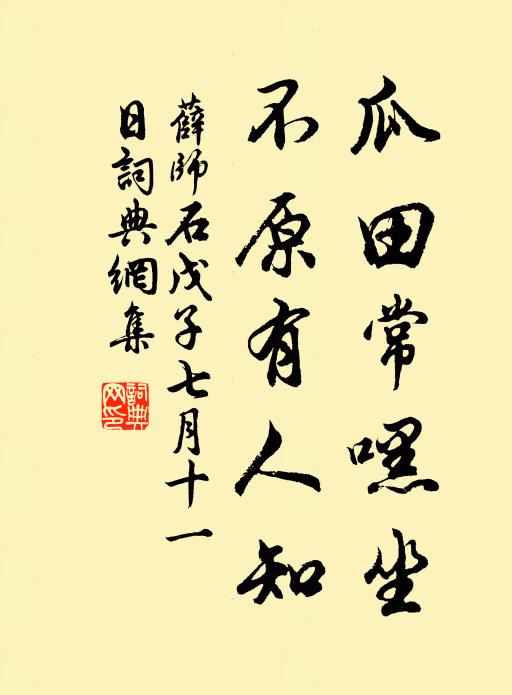 瓜田常嘿坐
不原有人知
薛師石戊子七月十一
日詞典網集
詞典
网印